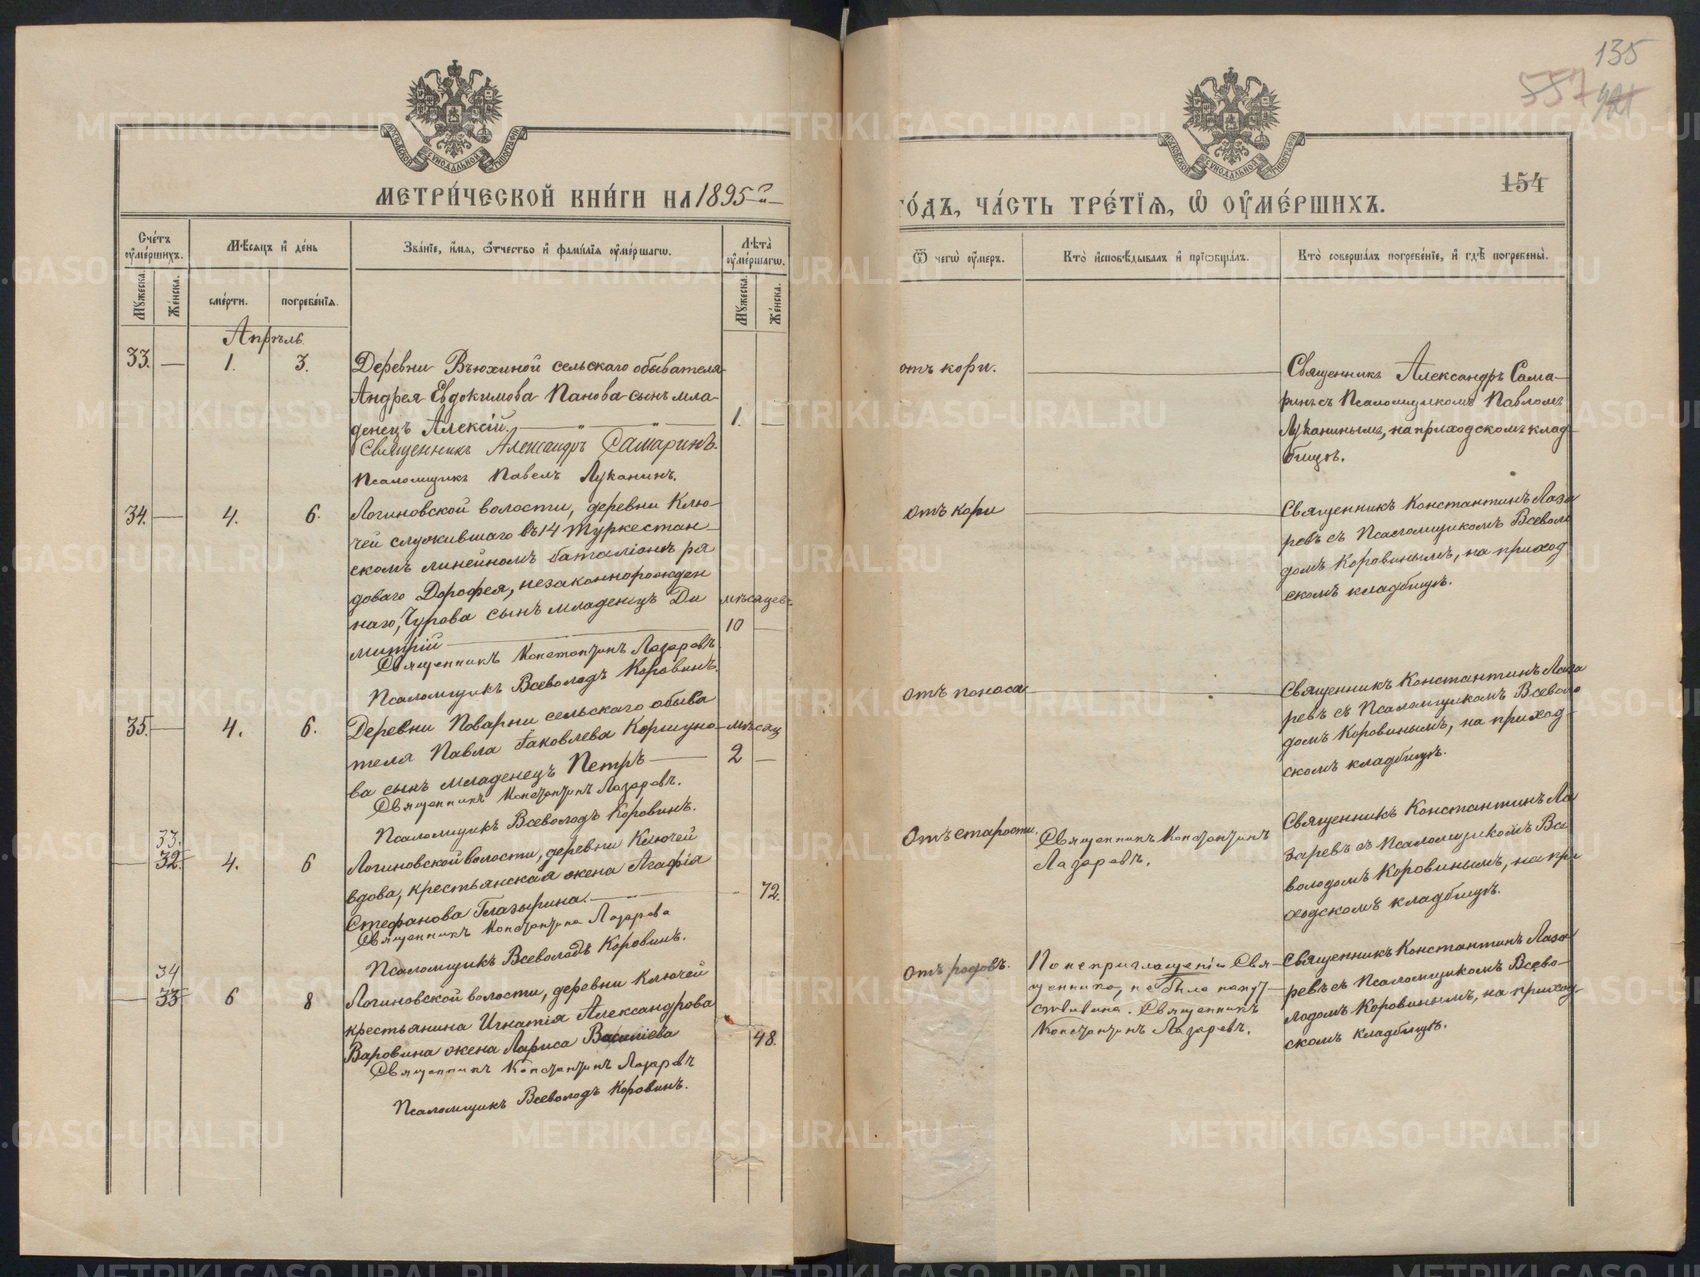 135
557
154
МЕТРИ́ЧЕСКОЙ КНИ́ГИ НА 1895 й
ГО́ДЪ, ЧА́СТЬ ТРЕ́ТЇѦ, Ѽ ОУ҆МЕ́РШИХЪ.
МОСКОВСКОЙ СѴНОДАЛЬНОЙ ТИПОГРАФІИ
МОСКОВСКОЙ СѴНОДАЛЬНОЙ ТИПОГРАФІИ
Сче́тъ оу҆ме́ршихъ.
Мѣ́сяцъ и҆ де́нь
Зва́нїе, и҆́мя, ѻ҆́тчество и҆ фами́лїя оу҆ме́ршагѡ.
Лѣ́та оу҆ме́ршагѡ.
Ѿ чегѡ̀ оу҆́меръ.
Кто̀ и҆сповѣ́дывалъ и҆ прїѡбща́лъ.
Кто̀ соверша́лъ погребе́нїе, и҆ гдѣ̀ погребены̀.
Мꙋ́жеска.
Же́нска.
сме́рти.
погребе́нїя.
Мꙋ́жеска.
Же́нска.
Апрѣль
33. — 1. 3.
Деревни Вьюхиной сельскаго обывателя
Андрея Евдокимова Панова сынъ мла-
денецъ Алексій.
1. —
Священникъ Александръ Самаринъ.
Псаломщикъ Павелъ Луканинъ.
отъ кори.
Священникъ Александръ Сама-
ринъ съ Псаломщикомъ Павломъ
Луканинымъ, на приходскомъ клад-
бищѣ.
34. — 4. 6.
Логиновской волости, деревни Клю-
чей служившаго въ 14 Туркестан-
скомъ линейномъ баталіонѣ ря
доваго Дорофея, незаконнорожден
наго, Чурова сынъ младенецъ Ди
митрій
мѣсяцев
10 —
Священникъ Константинъ Лазаревъ
Псаломщикъ Всеволодъ Коровинъ.
отъ кори
Священникъ Константинъ Лаза
ревъ съ Псаломщикомъ Всеволо
домъ Коровинымъ, на приход
скомъ кладбищѣ.
35. — 4. 6.
Деревни Поварни сельскаго обыва
теля Павла Іаковлева Коршуно-
ва сынъ младенецъ Петръ
мѣсяц
2 —
Священникъ Константинъ Лазаревъ.
Псаломщикъ Всеволодъ Коровинъ.
отъ поноса
Священникъ Константинъ Лаза
ревъ съ Псаломщикомъ Всеволо
домъ Коровинымъ, на приход-
скомъ кладбищѣ.
33.
— 32. 4. 6
Логиновской волости, деревни Ключей
вдова, крестьянская жена Агафія
Стефанова Глазырина.
— 72.
Священникъ Константинъ Лазаревъ
Псаломщикъ Всеволодъ Коровинъ.
Отъ старости.
Священникъ Константинъ
Лазаревъ.
Священникъ Константинъ Ла
заревъ съ Псаломщикомъ Все
володомъ Коровинымъ, на при
ходскомъ кладбищѣ.
34
— 33 6 8
Логиновской волости, деревни Ключей
крестьянина Игнатія Александрова
Варовина жена Лариса Василіева
48.
Священникъ Константинъ Лазаревъ
Псаломщикъ Всеволодъ Коровинъ.
Отъ родовъ.
По неприглашенію Свя-
щенника, не было напут-
ствована. Священникъ
Константинъ Лазаревъ.
Священникъ Константинъ Лаза
ревъ съ Псаломщикомъ Всево-
лодомъ Коровинымъ, на приход
скомъ кладбищѣ.
METRIKI.GASO-URAL.RU